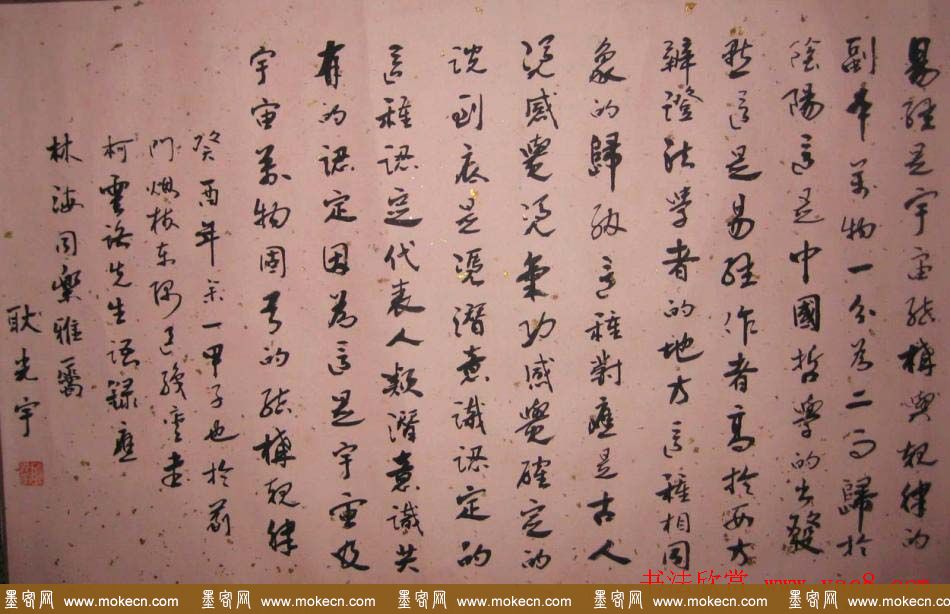 易经是宇宙结構與規律的
副本萬物一分为二而歸於
陰陽這是中國哲學的出發
點這是易经作者高於西方
辯證法學者的地方這種相同
象的歸納這種對應是古人
憑感覺憑氣功感覺確定的
説到底是憑潛意識認定的
這種認定代表人類潛意識共
有的認定因為這是宇宙及
宇宙萬物固有的结構規律
癸酉年余一甲子也於前
门烟枝东隅
柯雲路先生语録應
林海同樂雅屬
耿光宇
书法欣赏
墨客网 www.mokecn.com 墨客网 www.mokecn.com 墨客网 www.mokecn.com 墨客网 www.mokecn.com 墨客网 www.mokecn.com